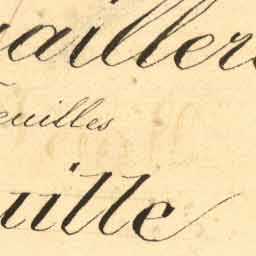 ailler
euilles
uille